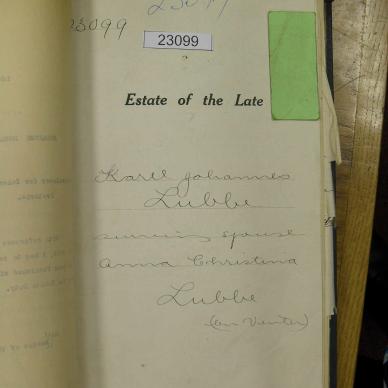 23099
23099
23099
Estate of the Late
Karel Johannes
Lubbe
surviving spouse
Anna Christina
Lubbe
(born Venter)